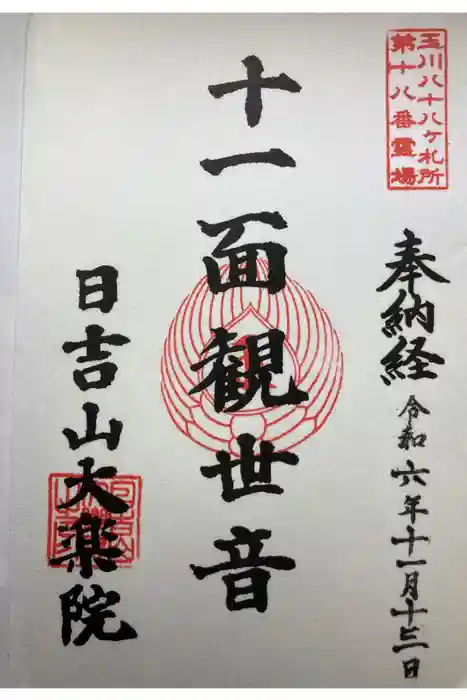 玉川八十八ヶ札所
第十八番霊場
奉納経 令和六年十一月十三日
十一面観世音
日吉山大楽院